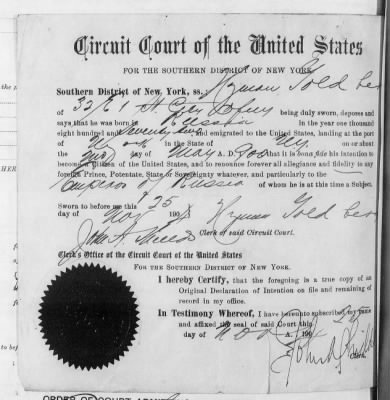 Circuit Court of the United States
FOR THE SOUTHERN DISTRICT OF NEW YORK.
Southern District of New York, ss.: Hyman Gold ber
of 32 E 1 St City being duly sworn, deposes and
says that he was born in Russia in the year one thousand
eight hundred and seventy and emigrated to the United States, landing at the port
of N York in the State of NY on or about
the day of May A. D. 900 that it is bona fide his intention to
become a Citizen of the United States, and to renounce forever all allegiance and fidelity to any
foreign Prince, Potentate, State or Sovereignty whatever, and particularly to the
Emperor of Russia of whom he is at this time a Subject.
Sworn to before me this 25
day of Nov 190 Hyman Gold ber
John A. Clerk of said Circuit Court.
Clerk's Office of the Circuit Court of the United States
FOR THE SOUTHERN DISTRICT OF NEW YORK.
I hereby Certify, that the foregoing is a true copy of an
Original Declaration of Intention on file and remaining of
record in my office.
In Testimony Whereof, I have hereunto subscribed my name
and affixed the seal of said Court this 25
day of Nov A., 190
John A.
Clerk